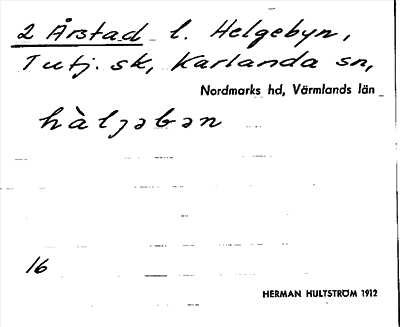 2 Årstad l. Helgebyn,
Tutj. sk, Karlanda sn,
Nordmarks hd, Värmlands län
hàljəbən
16
HERMAN HULTSTRÖM 1912